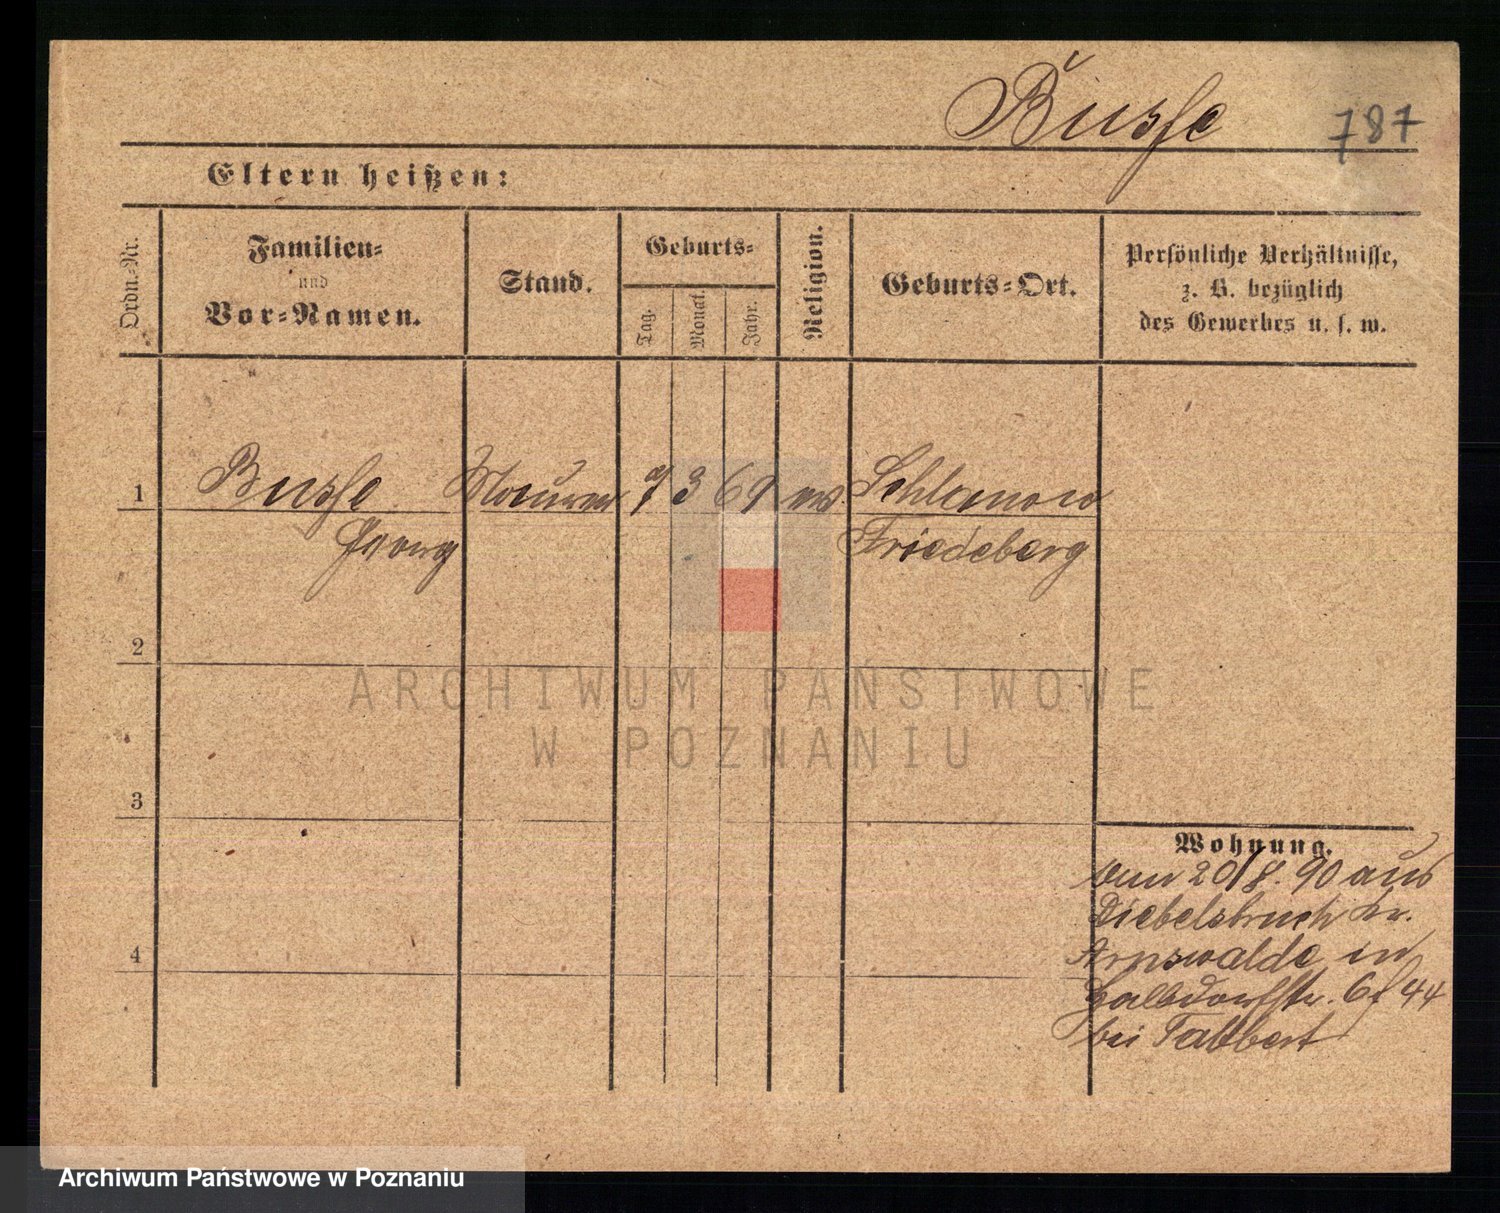 Busse
787
Eltern heißen:
Ordn.-Nr.
Familien-
und
Vor-Namen.
Stand.
Geburts-
Tag.
Monat.
Jahr.
Religion.
Geburts-Ort.
Persönliche Verhältnisse,
z. B. bezüglich
des Gewerbes u. s. w.
1
Busse
Georg
Maurer
7
3
69
ev.
Schlanow
Friedeberg
2
3
4
ARCHIWUM PAŃSTWOWE
W POZNANIU
Wohnung.
vom 20/8. 90 aus
Diebelsbruch Kr.
Arnswalde in
Halbdorfstr. 44
bei Tabbert
Archiwum Państwowe w Poznaniu